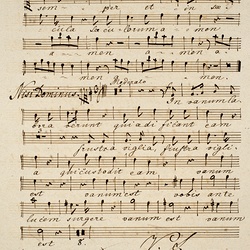 sem- per et in sae-
cula saeculorum a- mon
a mon a mon.
mon mon.
Nisi Dominus.
In vanum la-
bora verunt qui ædificant eam
frustra vigilia, frustra vigili-
a qui custodit eam vanum
est vanum est vobis ante
lucem surgere vanum est vanum
est 8.